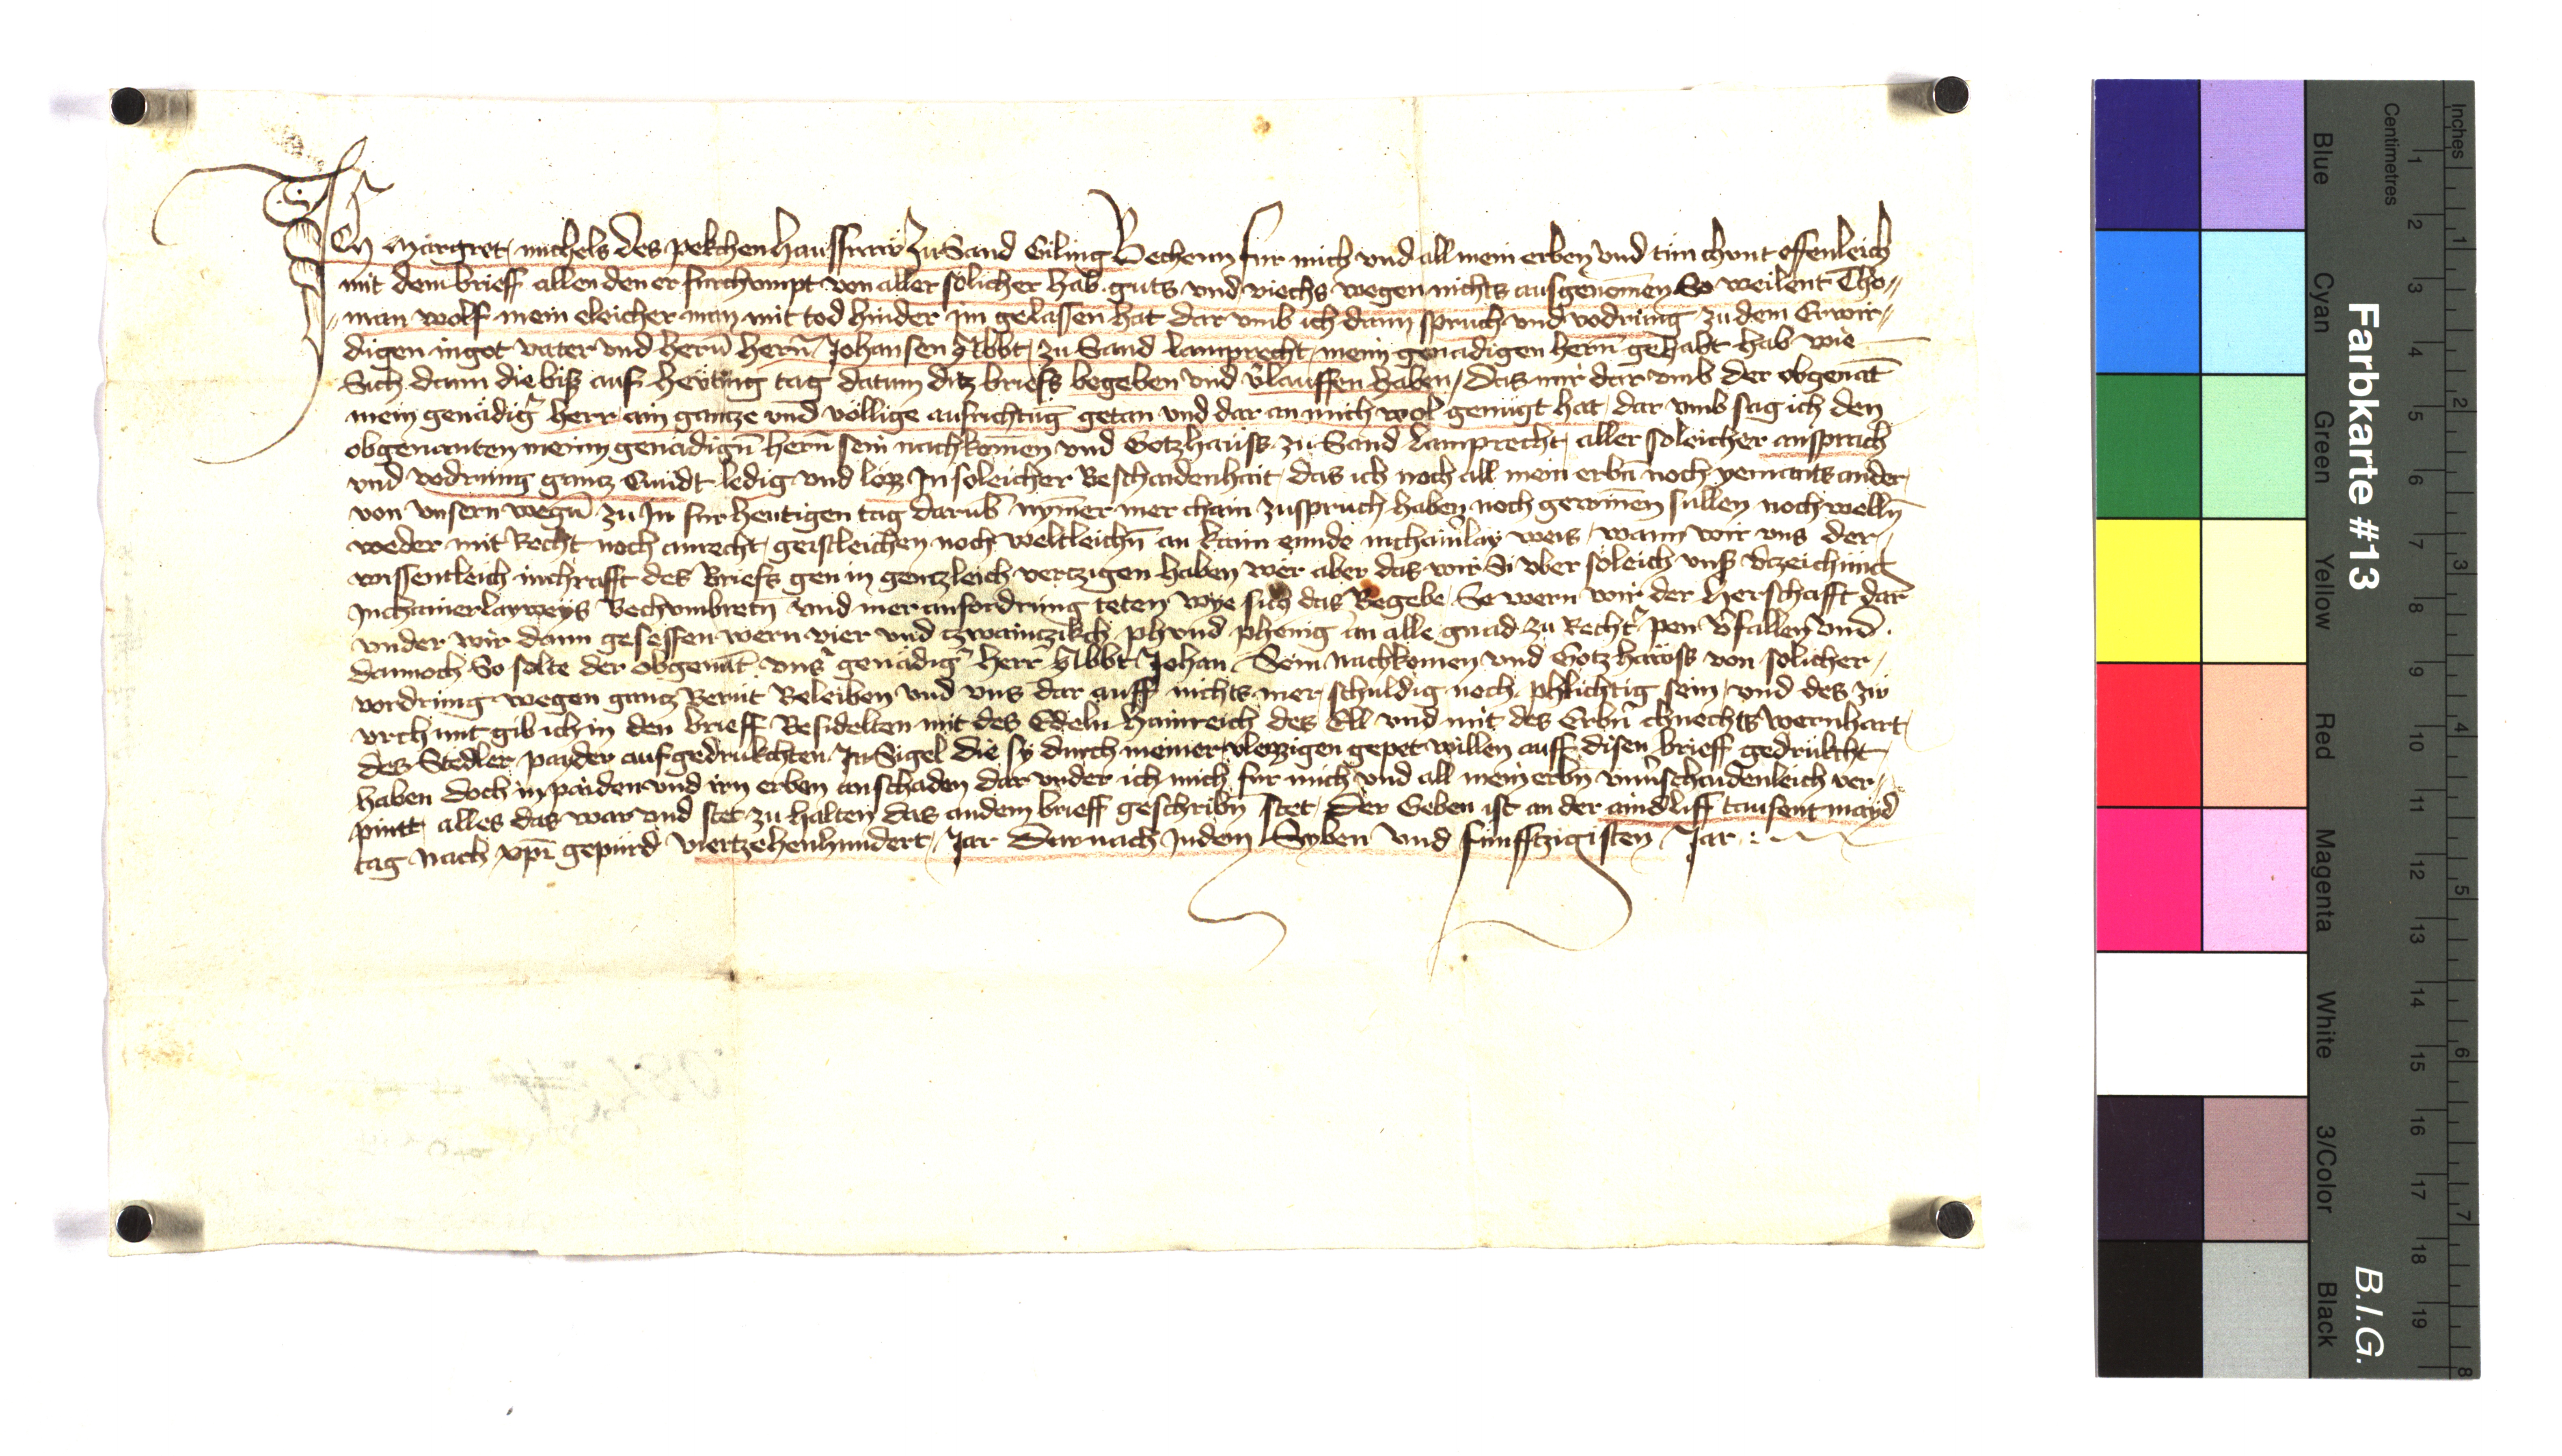 Ich Margret michels des pekchen haussfraw zu Sand Giling Bechenn fur mich und all mein erben und tun chunt offenleich
mit dem brieff allen den er furchumpt von aller solicher hab guts und viechs wegen nichts ausgenomen So weilent Tho„
„man wolf mein eleicher man mit tod hinder im gelassen hat dar umb ich dann spruch und vodrung zu dem Erwir„
digen in got vater und hern̄ hern̄ Johansen Abbt zu Sand lamprecht mein genadigen hern̄ gehabt hab wie
Sich dann die bis auf hewting tag datum ditz briefs begeben und v̄lauffen haben / das mir dar umb der obgenāt
mein genädiḡ herr ain gantze und völlige aufrichtūg getan und dar an mich wol genugt hat dar umb sag ich den
obgenanten meinn genadign̄ hern̄ sein nachkomen und Gotzhauss zu Sand Lamprecht aller soleicher ansprach
und vodrung gantz Quidt ledig und los In soleicher Beschaidenhait das ich noch all mein erbn̄ noch yemants ander
von unsern wegn̄ zu In fur heutigen tag darub̄ nȳmer mer chain zuspruch haben noch gewinen sullen noch welln̄
weder mit Recht noch anrecht geistleichen noch weltleichn̄ an kain ennde in chainlay weis wann wir uns der
wissentleich in chrafft des Briefs gen in gentzleich vertzigen haben wer aber das wir Si uber soleich uns v̄czeichnus
In chainerlay weys Bechumbretn̄ und mer anfordrung teten wye sich das Begebe So wern wir der herschafft dar
under wir dann gesessen wern vier und tzwaintzikch phund phenig an alle gnad zu Recht̄ pen v̄fallen und
dannoch So solte der obgenāt uns̄ genädiḡ herr Abbt Johan Sein nachkomen und Gotzhawss von solicher
vordrung wegen gantz Berut Beleiben und uns dar auff nichts mer schuldig noch phlichtig sein und des zw
urchunt gib ich in den brieff Besidelten mit des Edeln hainreich des Ell und mit des Erbn̄ chnechts wernhart
des Stedler payder aufgedrukchten In Sigel die sy durch meiner vleyzzigen gepet willen auff disen brieff gedrukcht
haben doch in paiden und irn erben an schaden dar under ich mich fur mich und all mein erbn̄ unuschaidenleich ver„
pintt alles das war und stet zu halten das an dem brieff geschribn̄ stet Der Geben ist an der aindliff tausent mayd
tag Nach xpī gepurd viertzehenhundert Jar Darnach In dem Syben und funfftzigisten Jar :
Farbkarte #13
B.I.G.
Inches
Centimetres
Blue
Cyan
Green
Yellow
Red
Magenta
White
3/Color
Black
1 2 3 4 5 6 7 8 9 10 11 12 13 14 15 16 17 18 19
1 2 3 4 5 6 7 8